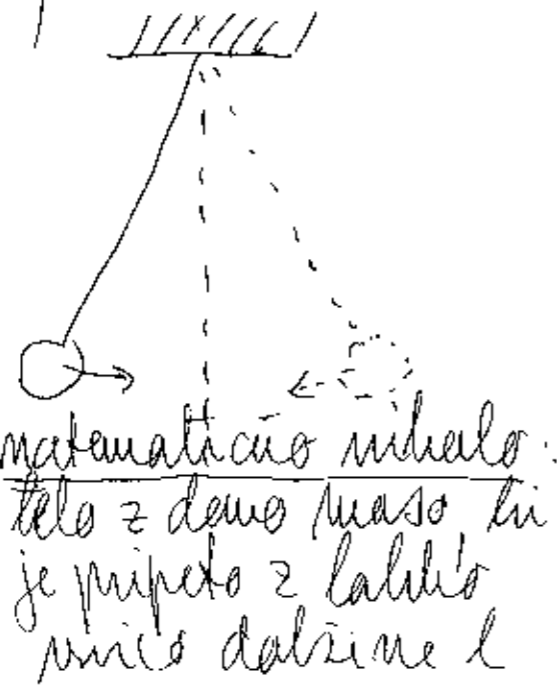 matematično nihalo:
telo z dano maso ki
je pripeto z lahko
vrvico dolžine l